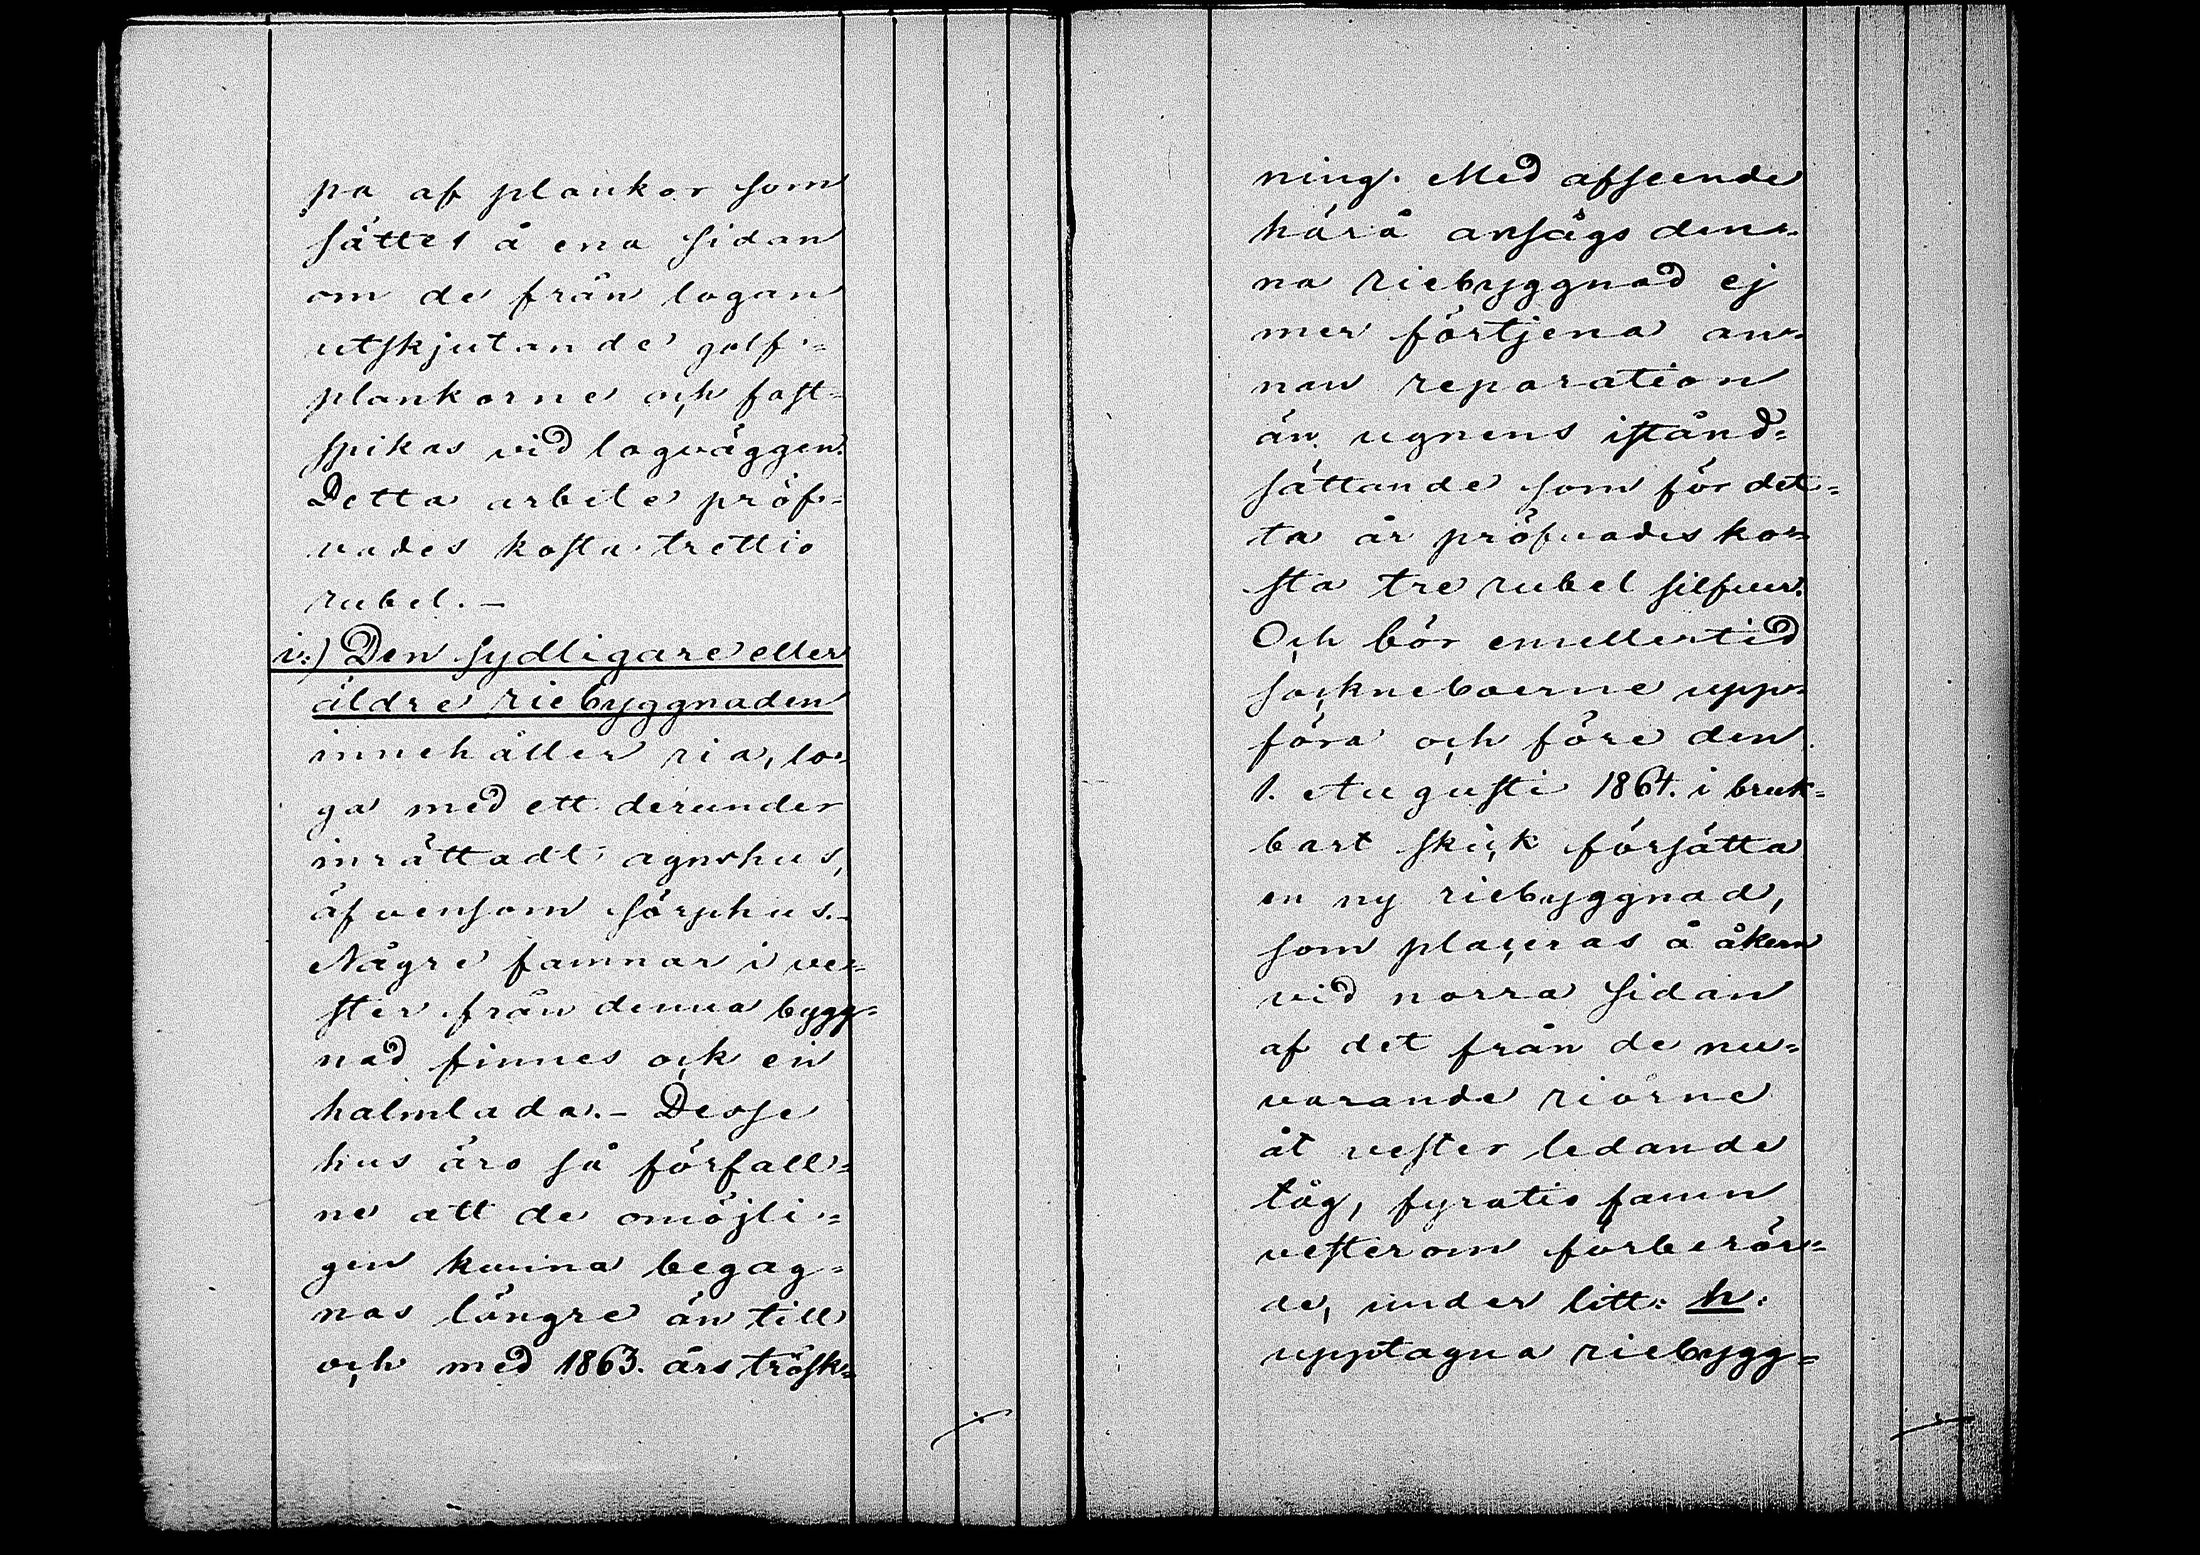 pa af plankor som
sättes å ena sidan
om de från logan
utskjutande golf-
plankorne och fast-
spikas vid logväggen.
Detta arbete pröf-
vades kosta trettio
rubel. –
i:) Den sydligare eller
äldre riebyggnaden
innehåller ria, lo-
ga med ett derunder
inrättadt agnshus,
äfvensom sörphus. –
Några famnar i ve-
ster från denna bygg-
nad finnes ock en
halmlada. – Desse
hus äro så förfall-
ne att de omöjli-
gen kunna begag-
nas längre än till
och med 1863. års trösk-
ning. Med afseende
härå ansågs den-
na riebyggnad ej
mer förtjena an-
nan reparation
än ugnens istånd-
sättande som för det-
ta år pröfvades ko-
sta tre rubel silfver.
Och bör emellertid
sockneboerne upp-
föra och före den
1. Augusti 1864. i bruk-
bart skick försätta
en ny riebyggnad,
som placeras å åkern
vid norra sidan
af det från de nu-
varande riorne
åt vester ledande
tåg, fyratio famn
vesterom förberör-
de, under litt: h:
upptagna riebygg-